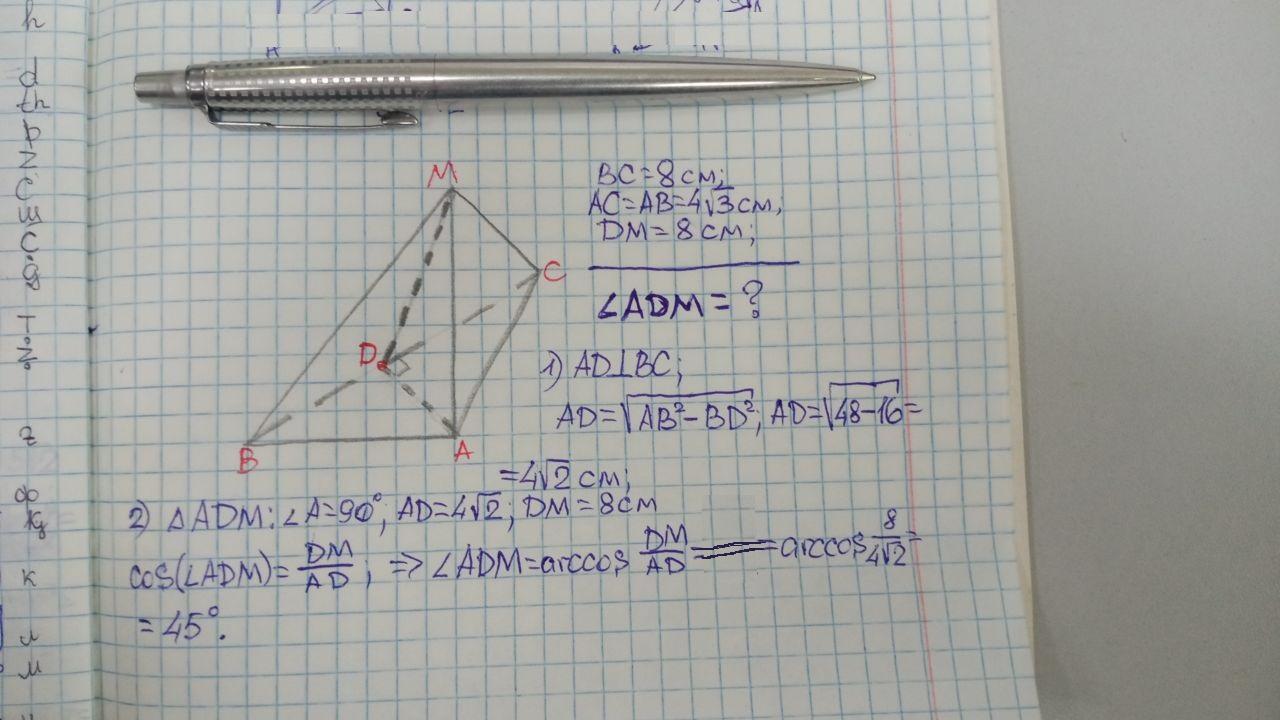 M
C
D
B
A
BC=8см;
AC=AB=4√3см,
DM=8см;
∠ADM=?
1) AD⊥BC;
AD=√(AB²-BD²); AD=√(48-16)=
=4√2см;
2) ΔADM: ∠A=90°, AD=4√2; DM=8см
cos(∠ADM)=DM/AD; => ∠ADM=arccos DM/AD = arccos 8/4√2=
=45°.